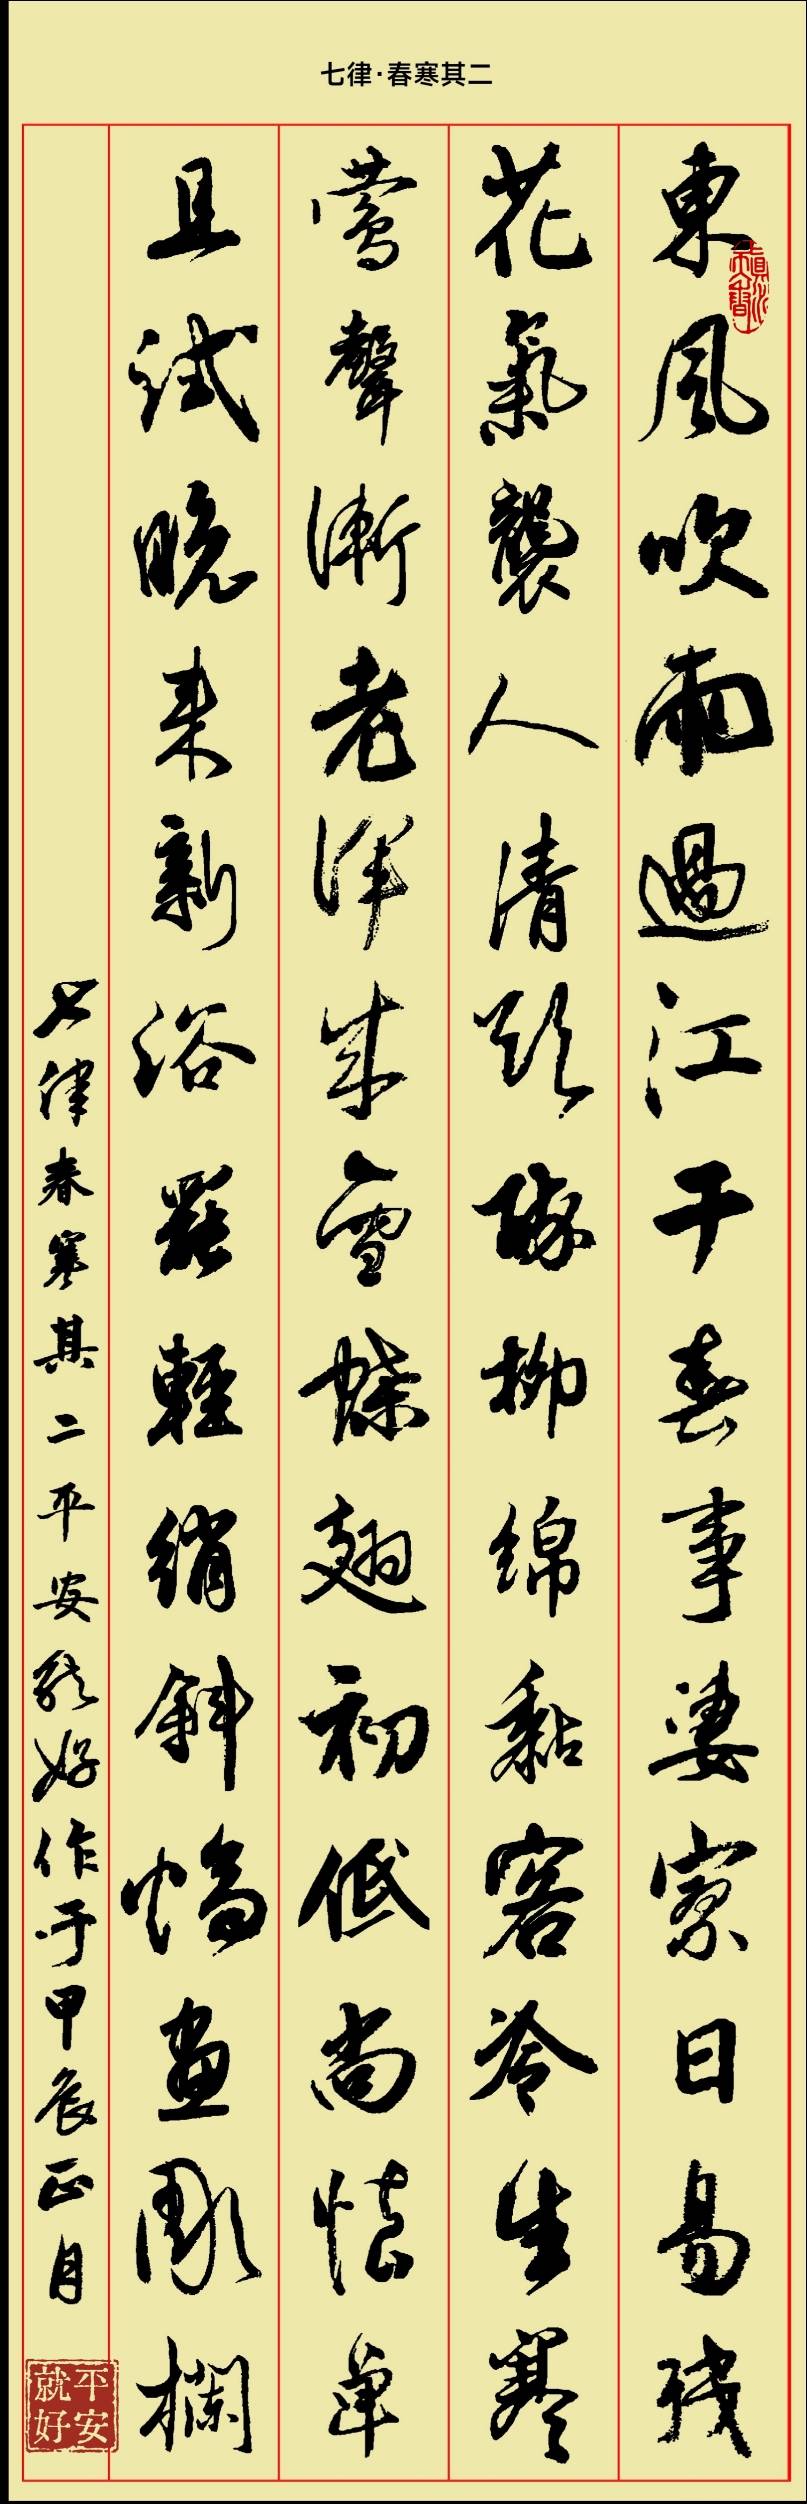 七律·春寒其二
東風吹雨過江干春事凄索日易殘
花氣襲人清柳綿黏客冷生寒
鶯聲漸老渾成雪蝶翅初低尚怯單
且試晚來新浴罷輕綃斜畫雕欄
七律春寒其二平安就好作于甲辰正月
平安就好